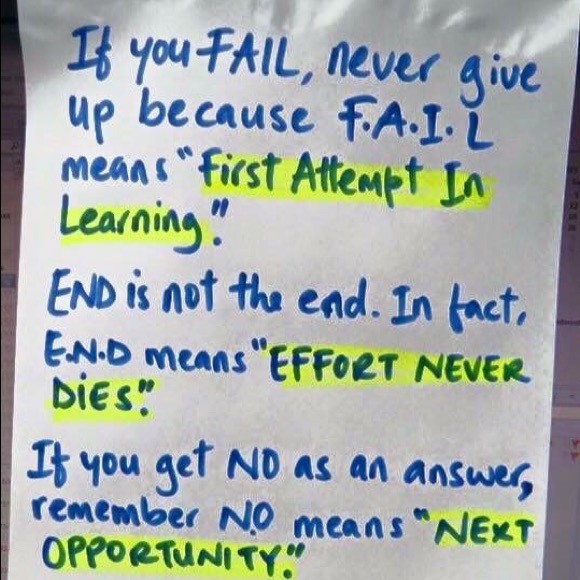 If you FAIL, never give
up because F.A.I.L
means "First Attempt In
Learning."
END is not the end. In fact,
E.N.D means "EFFORT NEVER
DiES."
If you get NO as an answer,
remember N.O means "NEXT
OPPORTUNITY."